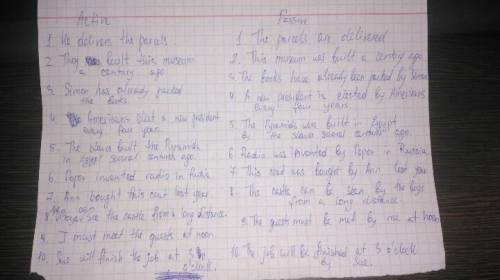 Active
1. He delivers the parcels
2. They built this museum
a century ago
3. Simon has already packed
the books
4. Americans elect a new president
every four years
5. The slaves built the Pyramids
in Egypt several centuries ago.
6. Popov invented radio in Russia
7. Ann bought this coat last year
8. see the castle from a long distance
9. I must meet the guests at noon
10. She will finish the job at 3
o'clock.
Passive
1. The parcels are delivered
2. This museum was built a century ago
3. The books have already been packed by Simon
4. A new president is elected by Americans
every four years.
5. The Pyramids were built in Egypt
by the slaves several centuries ago.
6. Radio was invented by Popov in Russia
7. This coat was bought by Ann last year
8. The castle can be seen by the
from a long distance.
9. The guests must be met by me at noon
10. The job will be finished at 3 o'clock
by she.